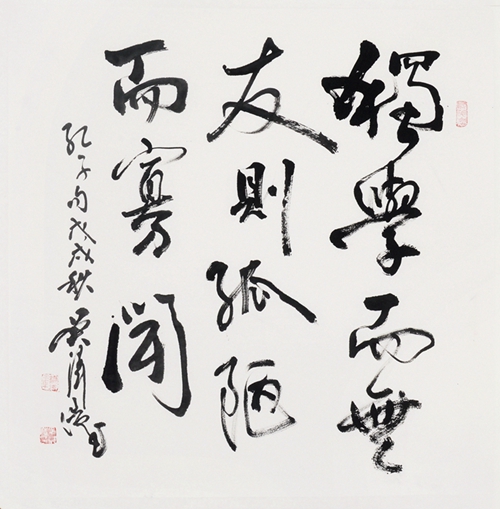 獨學而無
友則孤陋
而寡聞
孔子句戊戌秋